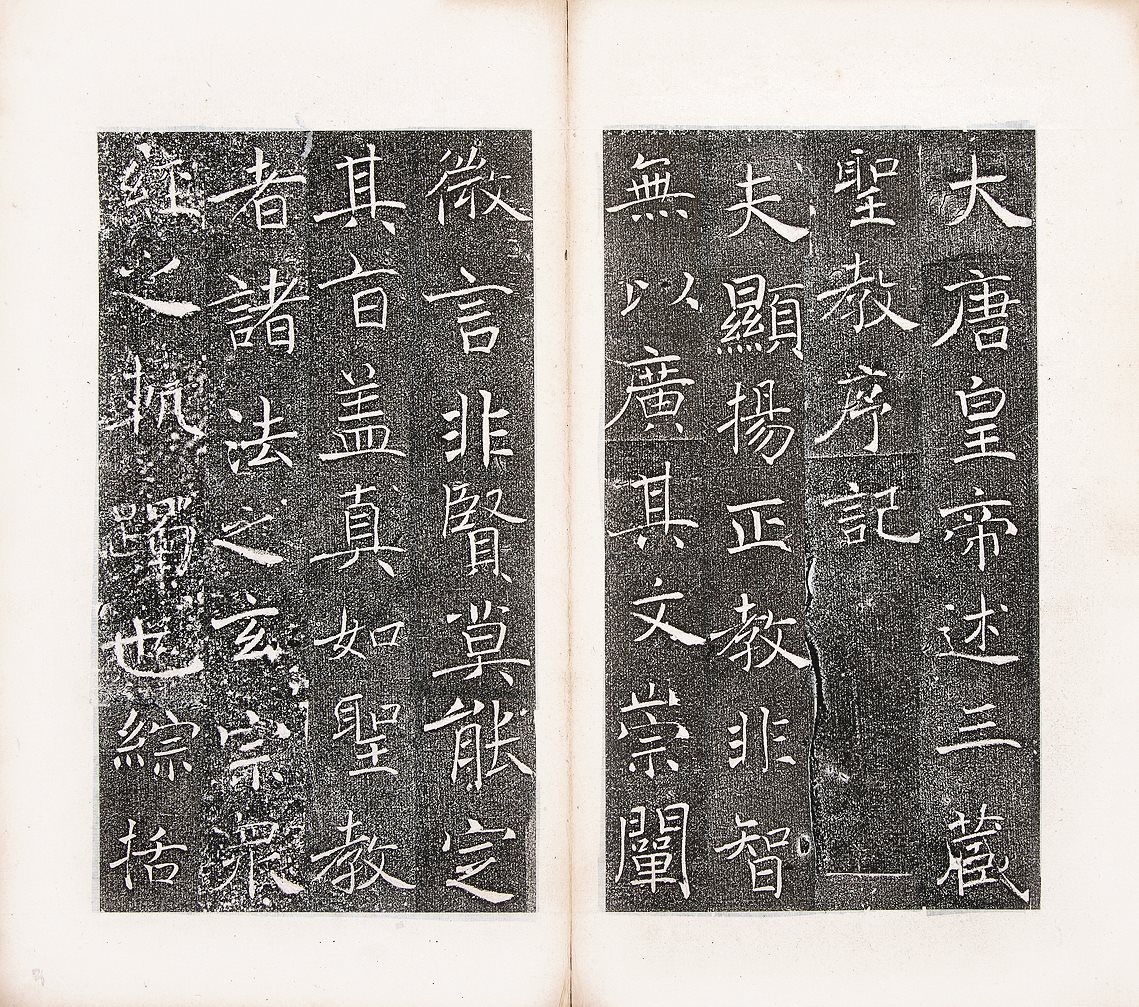 大唐皇帝述三藏
聖教序記
夫顯揚正教非智
無以廣其文崇闡
微言非賢莫能定
其旨盖真如聖教
者諸法之玄宗眾
經之軌躅也綜括